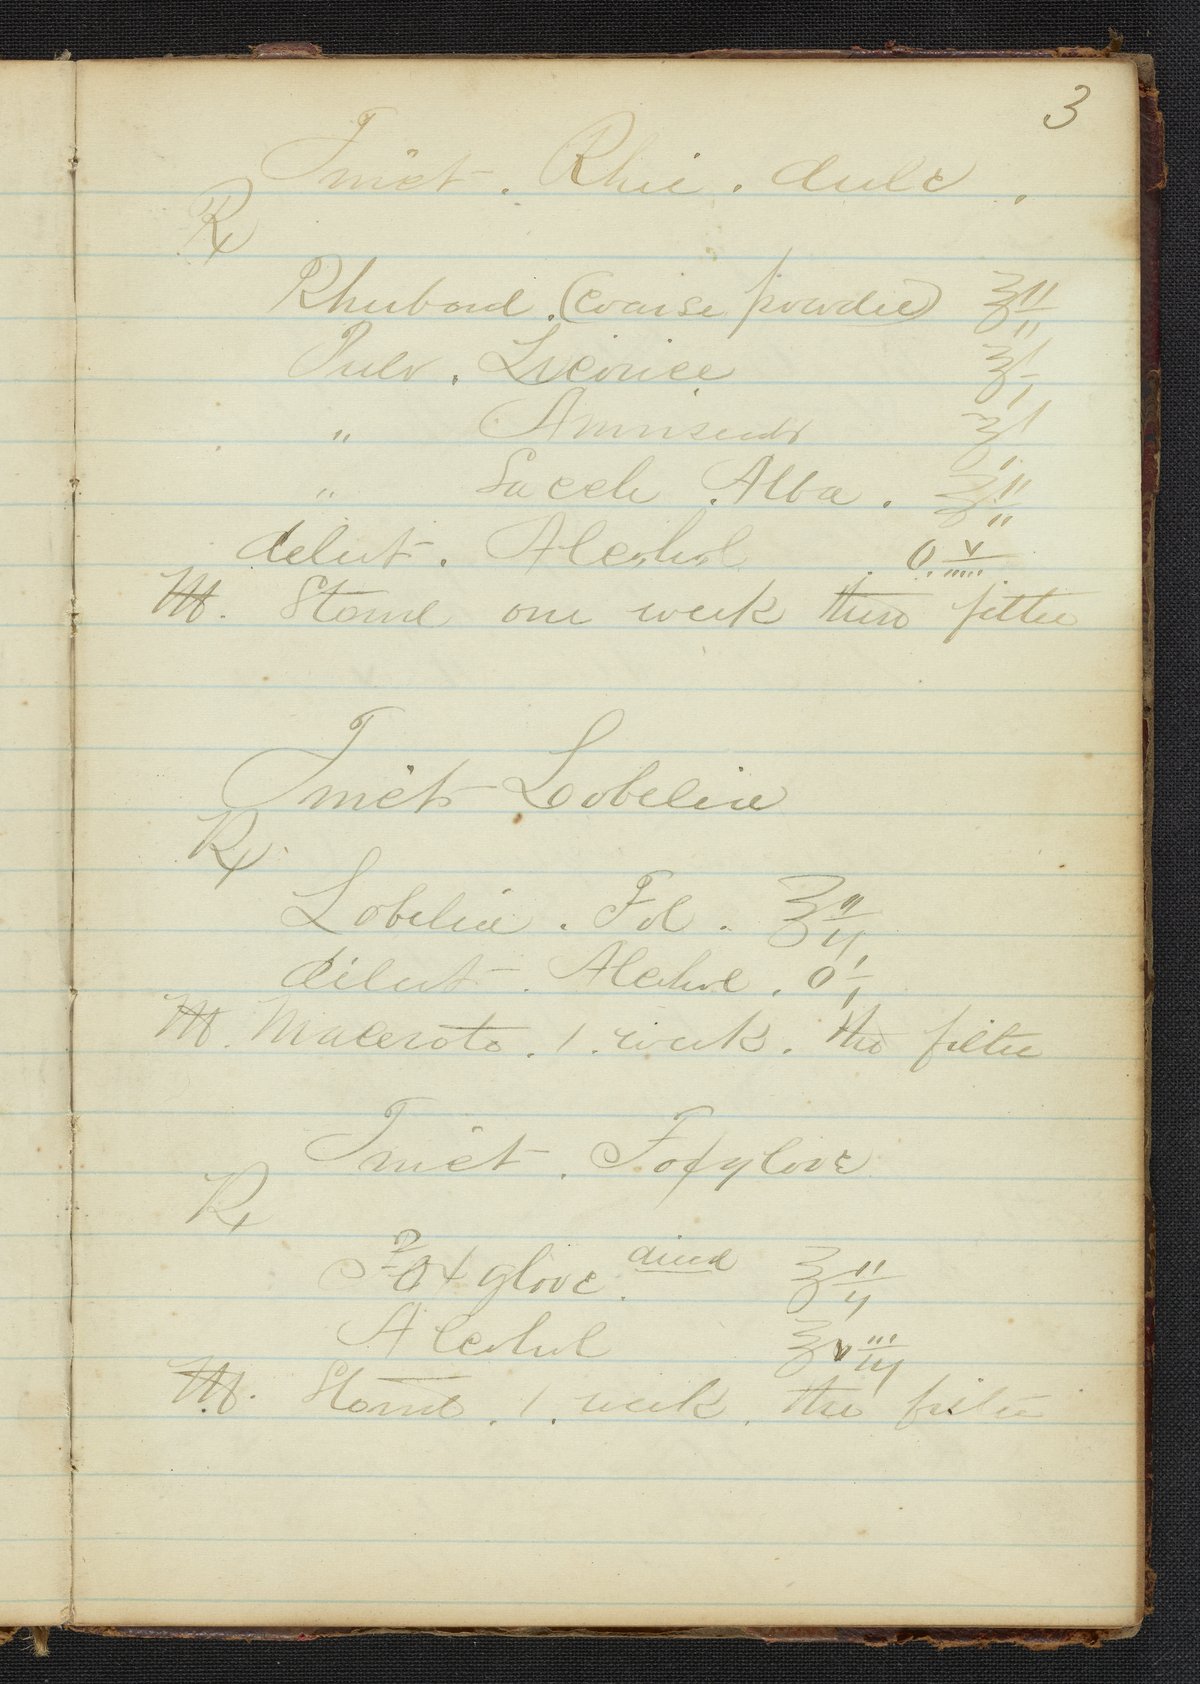 3
Tinct. Rhei. dulc.
Rx
Rhubarb. (coarse powder) ℥ii
Pulv. Licorice ℥i
" Anniseeds ℥i
" Sacch. Alba. ℥ii
dilut. Alcohol O.v
M. Stand one week then filter
Tinct Lobelia
Rx
Lobelia. Fol. ℥ii
dilut. Alcohol. Oi
M. Macerate. 1. week. then filter
Tinct. Foxglove
Rx
Foxglove. dried ℥ii
Alcohol
M. Stand. 1. week. then filter